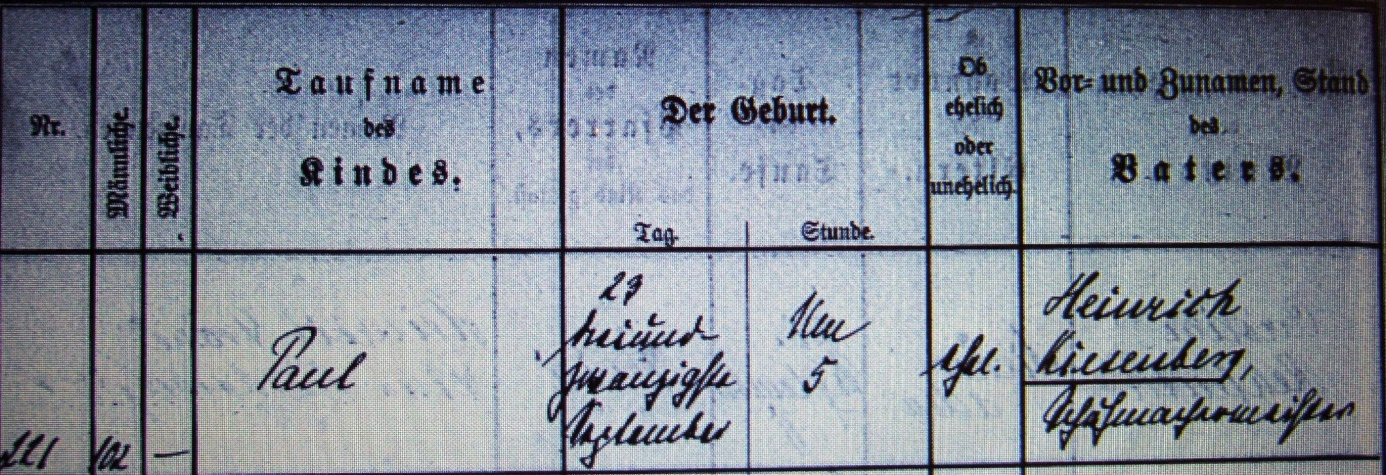 Nr.
Männliche.
Weibliche.
Taufname
des
Kindes.
Der Geburt.
Tag.
Stunde.
Ob
ehelich
oder
unehelich.
Vor- und Zunamen, Stand
des
Vaters.
221
102
—
Paul
23
dreiund-
zwanzigste
September
5
ehel.
Heinrich
Kiesenberg,
Schuhmachermeister